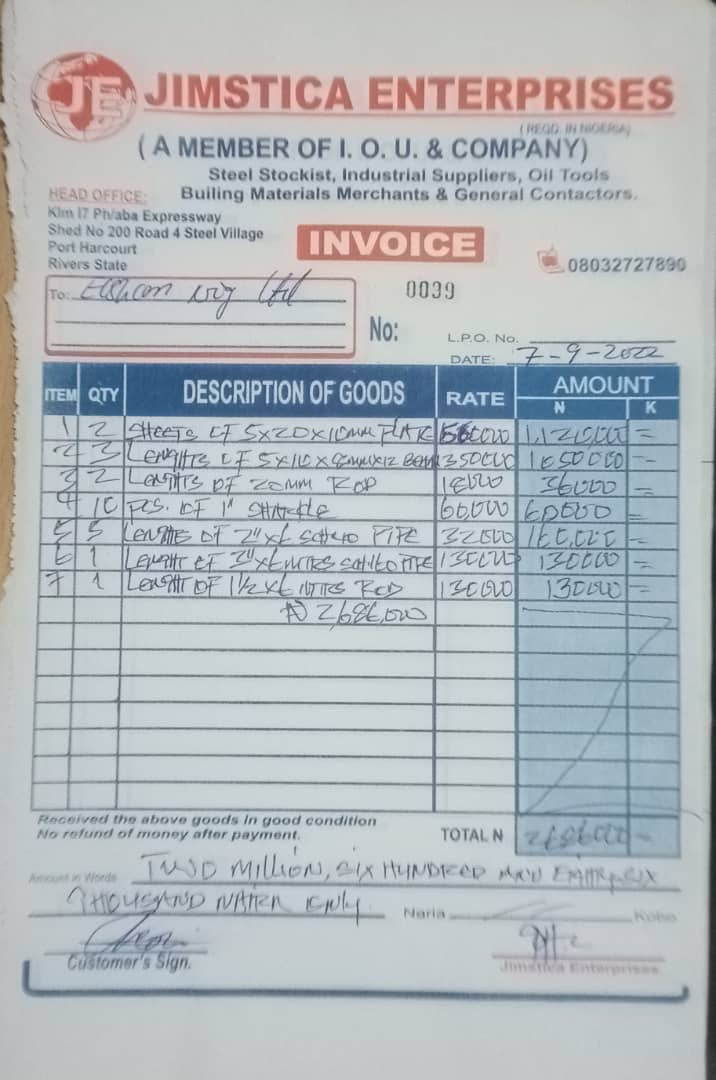 JE
JIMSTICA ENTERPRISES
(REGD. IN NIGERIA)
( A MEMBER OF I. O. U. & COMPANY)
Steel Stockist, Industrial Suppliers, Oil Tools
Builing Materials Merchants & General Contactors.
HEAD OFFICE:
Klm 17 Ph/aba Expressway
Shed No 200 Road 4 Steel Village
Port Harcourt
Rivers State
INVOICE
08032727890
To: Nig Ltd
0039
No:
L.P.O. No.
DATE: 7-9-2022
ITEM QTY DESCRIPTION OF GOODS RATE AMOUNT
N K
1 2 SHEETS OF 5X20X10MM PLATE 560000 1,120,000 =
2 3 LENGHTS OF 5X10X X12 BEAM 350000 1050000 =
3 2 LENGHTS OF 20MM ROD 18000 36000 =
4 10 PCS. OF 1" SHACKLE 60,000 60000 =
5 5 LENGHTS OF 2"X6 PIPE 32000 160,000 =
6 1 LENGHT OF 3"X6MTRS PIPE 130000 130000 =
7 1 LENGHT OF 1½X6 MTRS ROD 130000 130000 =
₦ 2,686,000
Received the above goods in good condition
No refund of money after payment.
TOTAL N 2686000 =
Amount in Words TWO MILLION, SIX HUNDRED AND EIGHTY SIX
THOUSAND NAIRA ONLY Naria Kobo
Customer's Sign.
Jimstica Enterprises